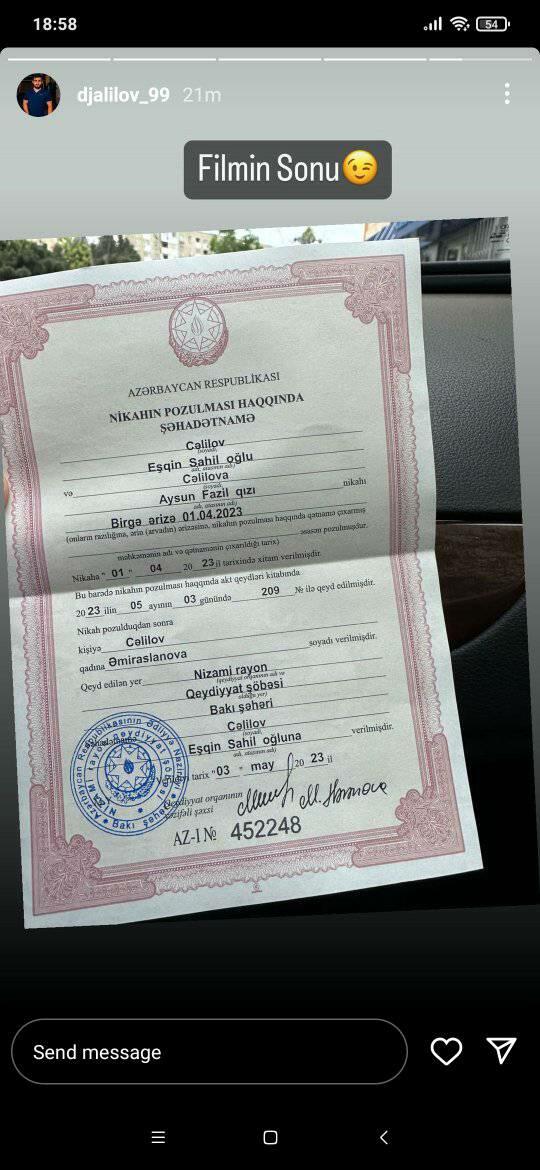 18:58
54
djalilov_99 21m
Filmin Sonu😉
AZƏRBAYCAN RESPUBLİKASI
NİKAHIN POZULMASI HAQQINDA
ŞƏHADƏTNAMƏ
Cəlilov
(soyadı,
Eşqin Sahil oğlu
adı, atasının adı)
və Cəlilova
(soyadı,
Aysun Fazil qızı nikahı
adı, atasının adı)
Birgə ərizə 01.04.2023
(onların razılığına, ərin (arvadın) ərizəsinə, nikahın pozulması haqqında qətnamə çıxarmış
əsasən pozulmuşdur.
məhkəmənin adı və qətnamənin çıxarıldığı tarix)
Nikaha "01" 04 2023 il tarixində xitam verilmişdir.
Bu barədə nikahın pozulması haqqında akt qeydləri kitabında
2023 ilin 05 ayının 03 günündə 209 № ilə qeyd edilmişdir.
Nikah pozulduqdan sonra
kişiyə Cəlilov
qadına Əmiraslanova soyadı verilmişdir.
Qeyd edilən yer Nizami rayon
(qeydiyyat orqanının adı və
Qeydiyyat şöbəsi
olduğu yer)
Bakı şəhəri
Cəlilov
(soyadı,
Eşqin Sahil oğluna verilmişdir.
adı, atasının adı)
tarix "03" may 2023 il
Qeydiyyat orqanının
vəzifəli şəxsi
AZ-I № 452248
Send message